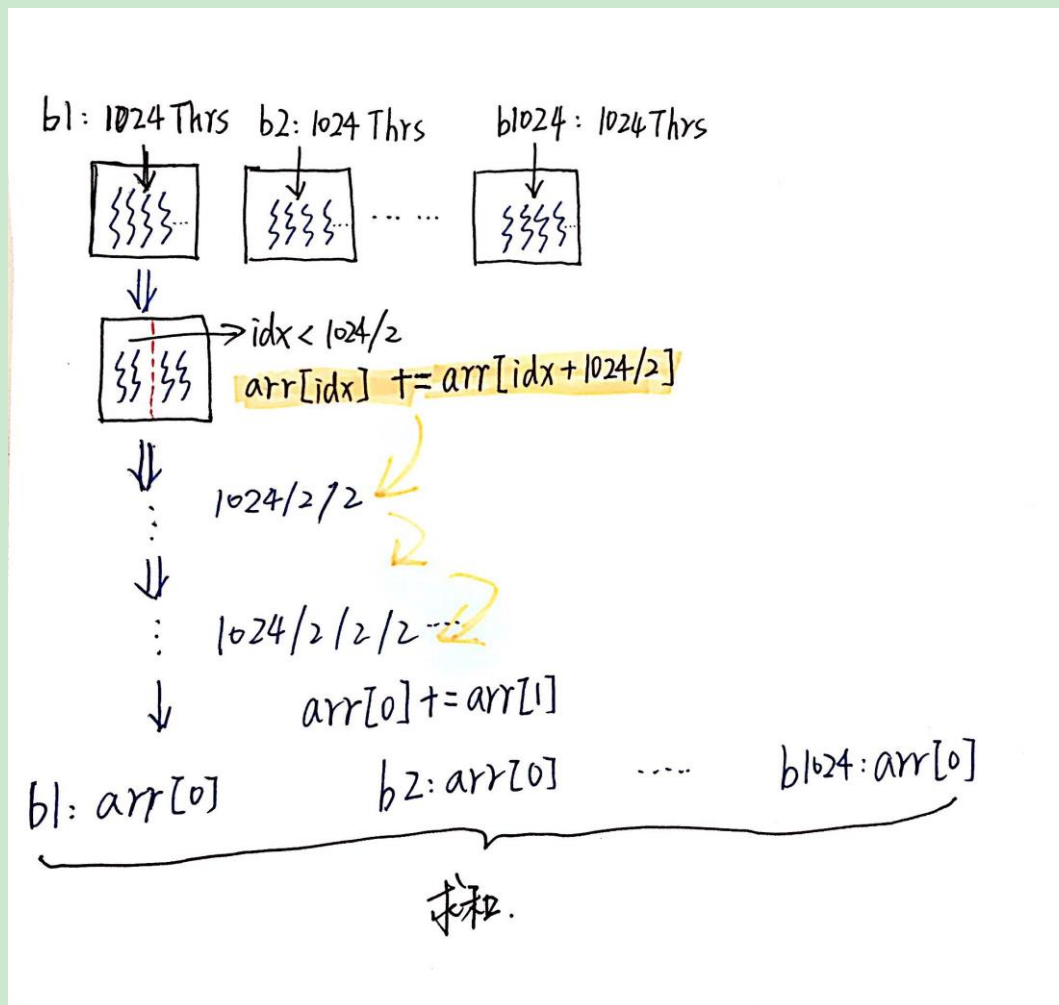 b1: 1024 Thrs b2: 1024 Thrs b1024: 1024 Thrs
... ... ...
idx < 1024/2
arr[idx] += arr[idx+1024/2]
1024/2/2
1024/2/2/2 ...
arr[0] += arr[1]
b1: arr[0] b2: arr[0] ..... b1024: arr[0]
求和.